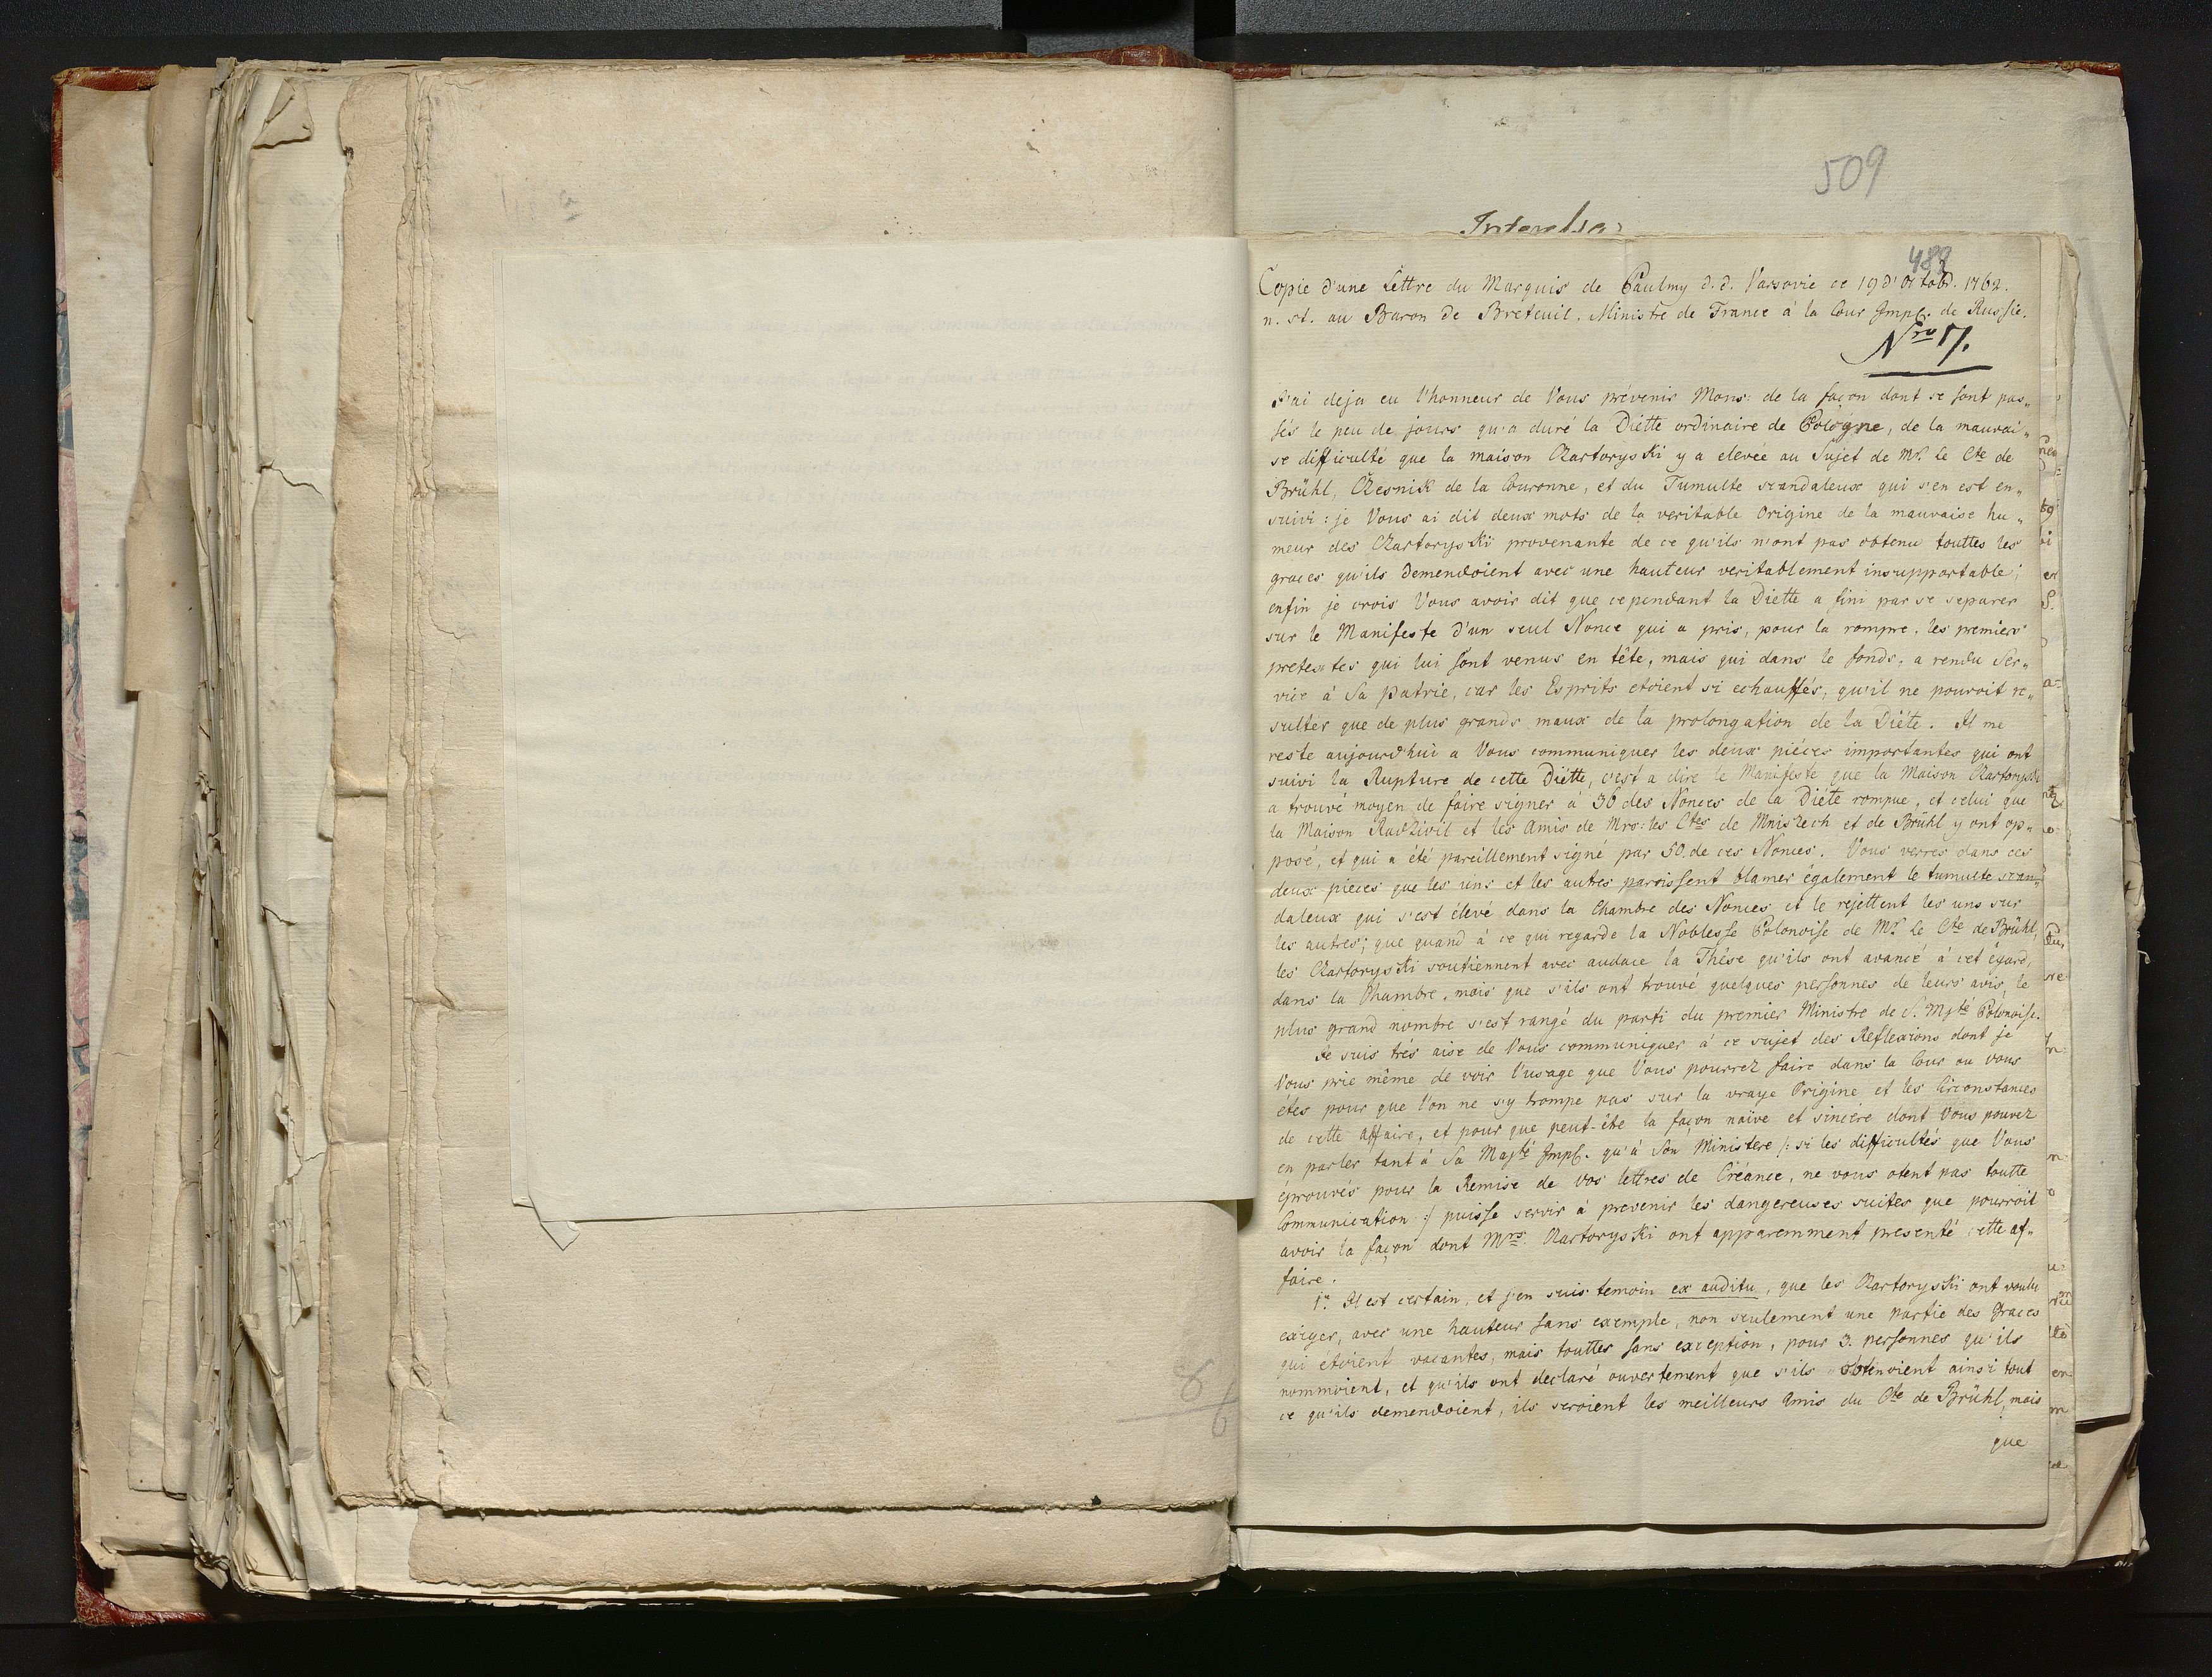 509
488
Copie d'une Lettre du Marquis de Paulmy d. d. Varsovie ce 19 d'Octobr. 1762.
n. st. au Baron de Breteuil, Ministre de France à la Cour Impl. de Russie.
Nro 17.
J'ai deja eu l'honneur de Vous prévenir Mons: de la façon dont se sont pas„
sés le peu de jours qu'a duré la Diétte ordinaire de Pologne, de la mauvai„
se difficulté que la maison Czartoryski y a elevée au Sujet de Mr. Le Cte de
Brühl, Czesnik de la Couronne, et du Tumulte scandaleux qui s'en est en„
suivi: je Vous ai dit deux mots de la veritable Origine de la mauvaise hu„
meur des Czartoryski provenante de ce qu'ils n'ont pas obtenu touttes les
graces qu'ils demendoient avec une hauteur veritablement insupportable;
enfin je crois Vous avoir dit que cependant la Diette a fini par se separer
sur le Manifeste d'un seul Nonce qui a pris, pour la rompre, les premiers
pretextes qui lui sont venus en tête, mais qui dans le fonds, a rendu Ser„
vice à Sa patrie, car les Esprits etoient si echauffés, qu'il ne pouvoit re„
sulter que de plus grands maux de la prolongation de la Diéte. Il me
reste aujourd'hui a Vous communiquer les deux piéces importantes qui ont
suivi la Rupture de cette Diétte, c'est a dire le Manifeste que la Maison Czartoryski
a trouvé moyen de faire signer à 36 des Nonces de la Diéte rompue, et celui que
la Maison Radzivil et les Amis de Mrs: les Ctes de Mniszech et de Brühl y ont op„
posé, et qui a été pareillement signé par 50. de ces Nonces. Vous verres dans ces
deux pieces que les uns et les autres paroissent blamer également le tumulte scan„
daleux qui s'est élevé dans la Chambre des Nonces et le rejettent les uns sur
les autres; que quand à ce qui regarde la Noblesse Polonoise de Mr. Le Cte de Brühl,
les Czartoryski soutiennent avec audace la Thése qu'ils ont avancé à cet égard,
dans la Chambre, mais que s'ils ont trouvé quelques personnes de leurs avis, le
plus grand nombre s'est rangé du parti du premier Ministre de S. Mjté Polonoise.
Je suis trés aise de Vous communiquer à ce sujet des Reflexions dont je
Vous prie même de voir l'usage que Vous pourrez faire dans la Cour ou vous
étes pour que l'on ne s'y trompe pas sur la vraye Origine et les Circonstances
de cette affaire, et pour que peut-être la façon naïve et sincére dont Vous pouvez
en parler tant à Sa Majté Impl. qu'à Son Ministere /: si les difficultés que Vous
éprouvés pour la Remise de vos lettres de Créance, ne vous otent pas toutte
Communication :/ puisse servir à prevenir les dangereuses suites que pourroit
avoir la façon dont Mrs. Czartoryski ont apparemment presenté cette af„
faire.
1o. Il est certain, et j'en suis temoin ex auditu, que les Czartoryski ont voulu
exiger, avec une hauteur sans exemple, non seulement une partie des Graces
qui étoient vacantes, mais touttes sans exception, pour 3. personnes qu'ils
nommoient, et qu'ils ont declaré ouvertement que s'ils obtenoient ainsi tout
ce qu'ils demendoient, ils seroient les meilleurs Amis du Cte de Brühl, mais
que